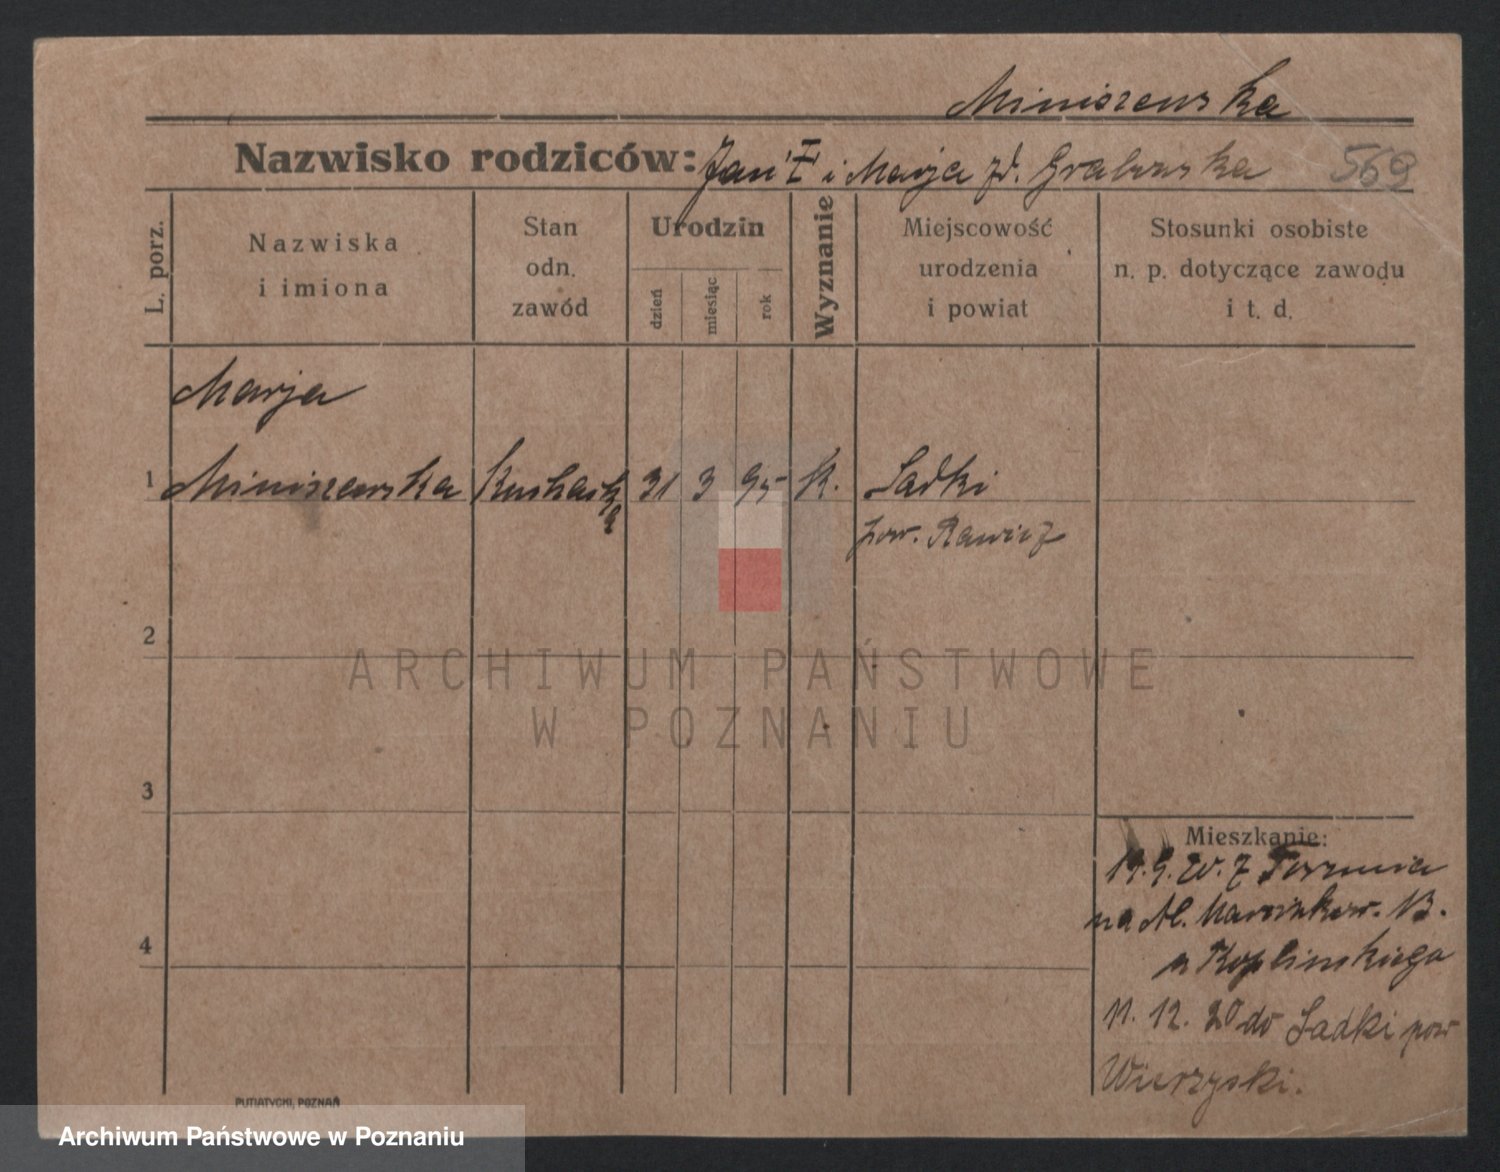 Miniszewska
Nazwisko rodziców: Jan i Marja zd. Grabowska 569
L. porz.
Nazwiska
i imiona
Stan
odn.
zawód
Urodzin
dzień
miesiąc
rok
Wyznanie
Miejscowość
urodzenia
i powiat
Stosunki osobiste
n. p. dotyczące zawodu
i t. d.
Marja
1 Miniszewska Kucharka 31 3 95 K. Sadki
pow. Rawicz
2
3
4
Mieszkanie:
19.9.20. z Torunia
na Al. Marcinkow. 13.
u Koplinskiego
11. 12. 20 do Sadki pow
Wierzyski.
PUTIATYCKI, POZNAŃ
ARCHIWUM PAŃSTWOWE
W POZNANIU
Archiwum Państwowe w Poznaniu